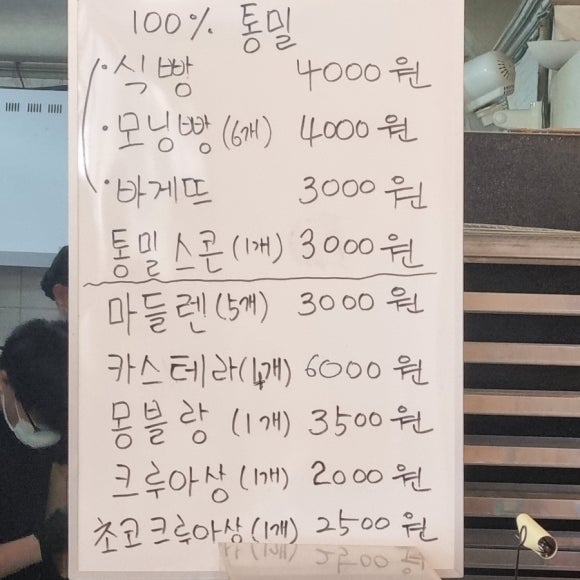 100% 통밀
· 식빵 4000원
· 모닝빵 (6개) 4000원
· 바게뜨 3000원
통밀스콘 (1개) 3000원
마들렌 (5개) 3000원
카스테라 (4개) 6000원
몽블랑 (1개) 3500원
크루아상 (1개) 2000원
초코크루아상 (1개) 2500원